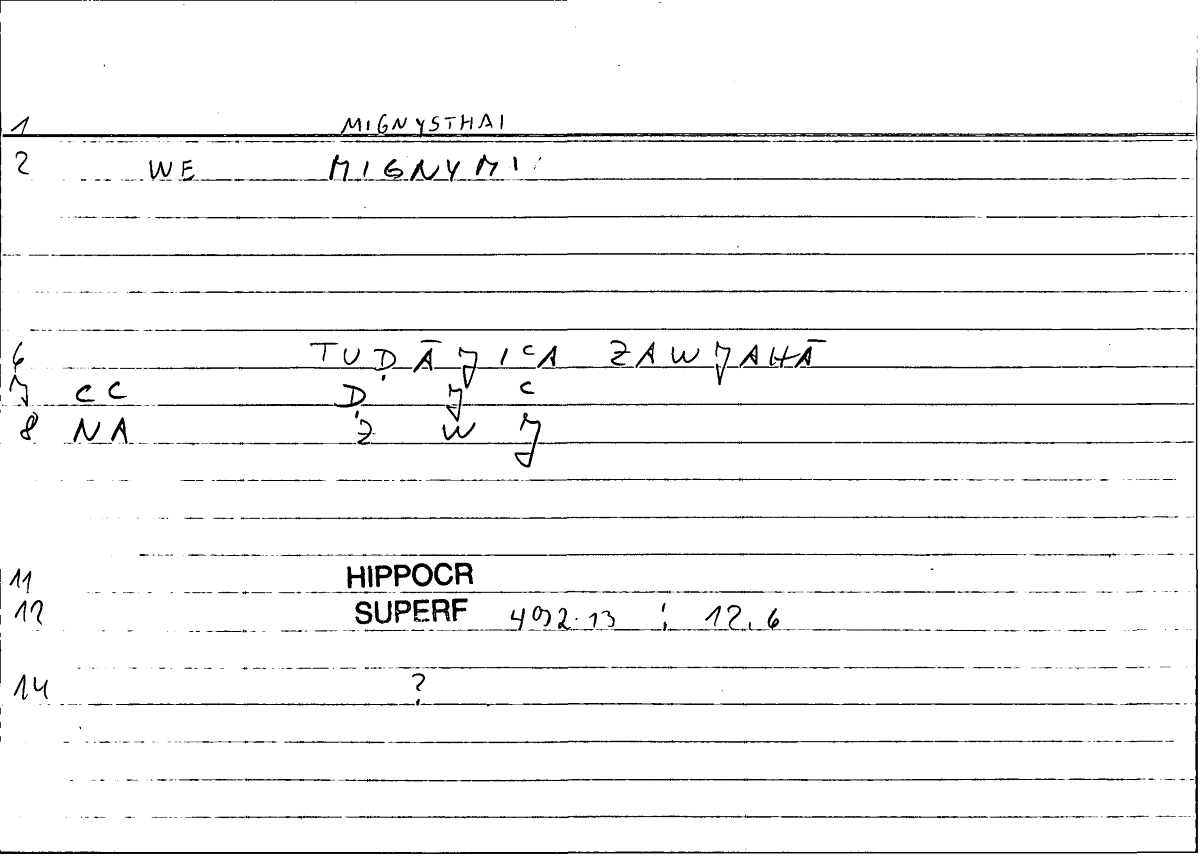 1 MIGNYSTHAI
2 WE MIGNYMI
6 TUḌĀJICA ZAWJAHĀ
7 CC Ḍ J C
8 NA Z W J
11 HIPPOCR
12 SUPERF 492.13 ; 12.6
14 ?